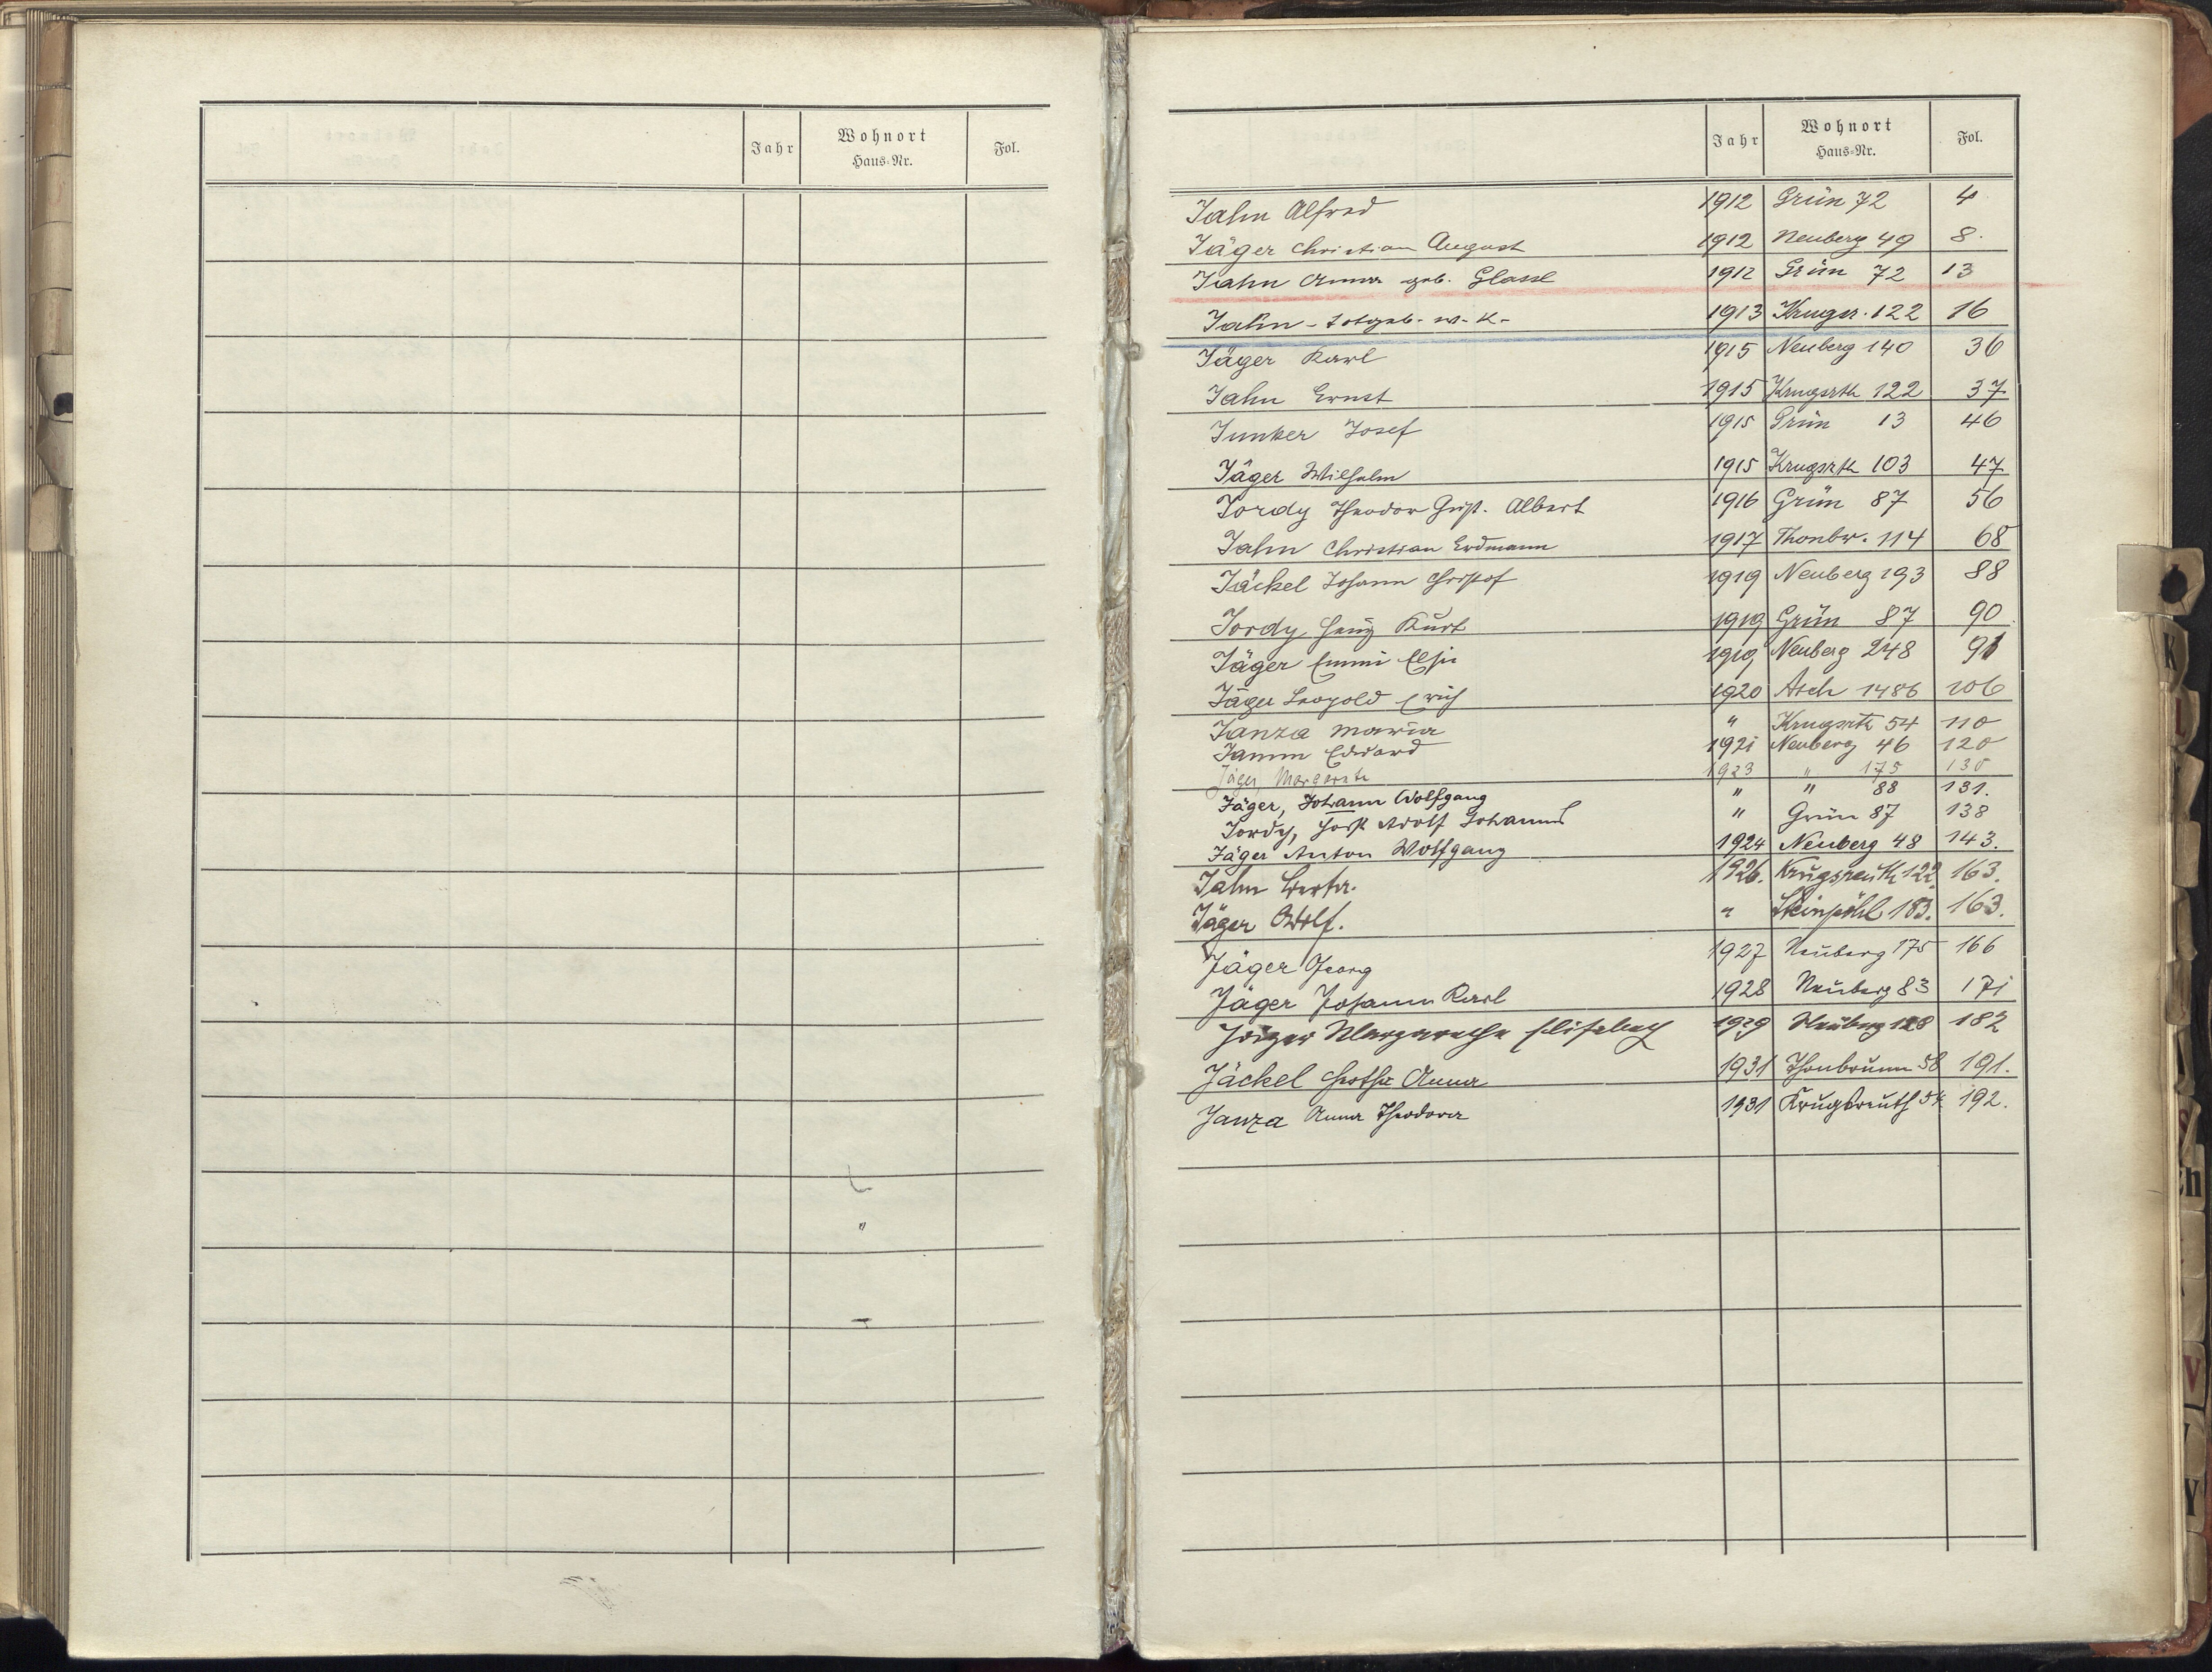 Jahr Wohnort Haus-Nr. Fol.
Jahr Wohnort Haus-Nr. Fol.
Jahn Alfred 1912 Grün 72 4
Jäger Christian August 1912 Neuberg 49 8.
Jahn Anna geb. Glassl 1912 Grün 72 13
Jahn - totgeb. w. K. 1913 Krugsr. 122 16
Jäger Karl 1915 Neuberg 140 36
Jahn Ernst 1915 Krugsrth 122 37
Junker Josef 1915 Grün 13 46
Jäger Wilhelm 1915 Krugsrth 103 47
Jordy Theodor Gust. Albert 1916 Grün 87 56
Jahn Christian Erdmann 1917 Thonbr. 114 68
Jäckel Johann Christof 1919 Neuberg 193 88
Jordy Heinz Kurt 1919 Grün 87 90
Jäger Emmi Elsa 1919 Neuberg 248 91
Jäger Leopold Erich 1920 Asch 1486 106
Janza Maria " Krugsrth 54 110
Jamm Eduard 1921 Neuberg 46 120
Jäger, Margarete 1923 " 175 130
Jäger, Johann Wolfgang " " 88 131.
Jordy, Horst Adolf Johannes " Grün 87 138
Jäger Anton Wolfgang 1924 Neuberg 48 143.
Jahn Berta. 1926. Krugsreuth 122 163.
Jäger Adolf. " Steinpöhl 183. 163.
Jäger Georg 1927 Neuberg 175 166
Jäger Johann Karl 1928 Neuberg 83 171
Jäger Margarethe Elisabeth 1929 Neuberg 128 182
Jäckel Herta Anna 1931 Thonbrunn 58 191.
Janza Anna Theodora 1931 Krugsreuth 54 192.